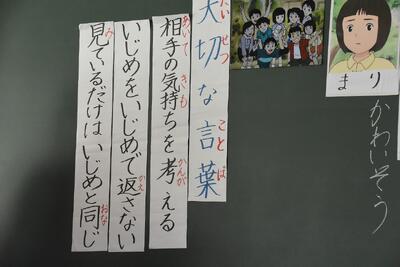 まり
かわいそう
大切な言葉
相手の気持ちを考える
いじめをいじめで返さない
見ているだけはいじめと同じ